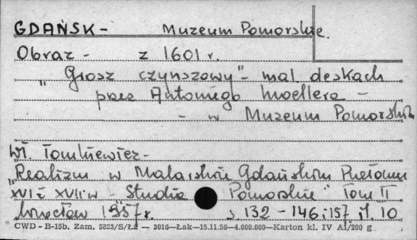 GDAŃSK - Muzeum Pomorskie.
Obraz - z 1601 r.
"Grosz czynszowy" - mal. deskach
przez Antoniego Moellera -
- w Muzeum Pomorskim
Wł. Tomkiewicz -
"Realizm w Malarstwie Gdańskim Przełomu
XVI i XVII w - Studia Pomorskie" Tom II
Wrocław 1957 r. s. 132 - 146; 157 il. 10
CWD - B-15b. Zam. 5823/S/Łż - 3016 - Łak - 15.11.56 - 4.000.000 - Karton kl. IV A1/200 g.